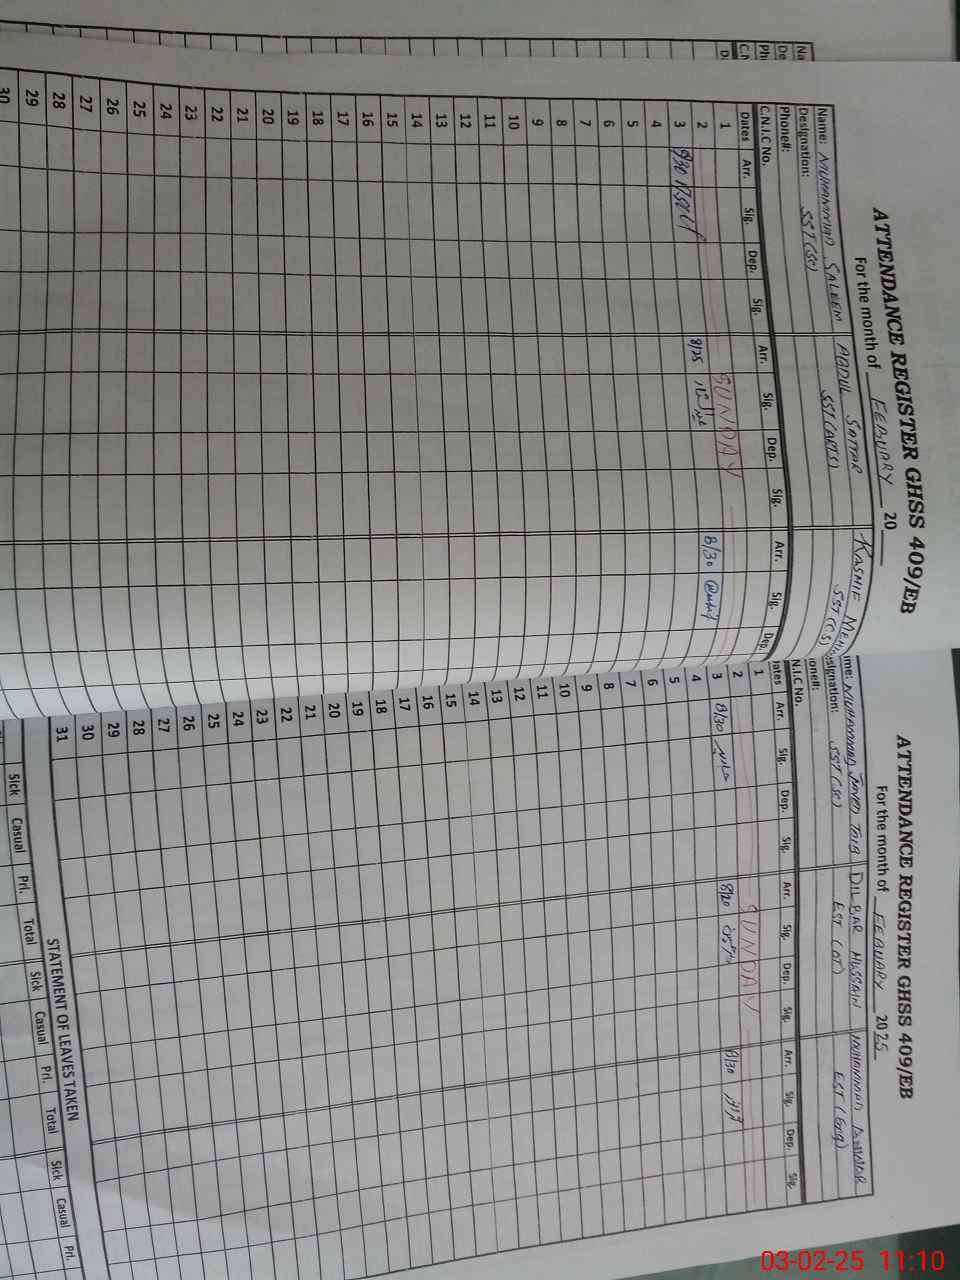 ATTENDANCE REGISTER GHSS 409/EB
For the month of FEBUARY 20
Name: MUHAMMAD SALEEM ABDUL SATTAR KASHIF
Designation: SST(SC) SST(ARTS) SST(CS)
Phone#:
C.N.I.C No.
Dates Arr. Sig. Dep. Sig. Arr. Sig. Dep. Sig. Arr. Sig. Dep.
1
2 SUNDAY
3 8/30 8/25 8/30
4
5
6
7
8
9
10
11
12
13
14
15
16
17
18
19
20
21
22
23
24
25
26
27
28
29
30
ATTENDANCE REGISTER GHSS 409/EB
For the month of FEBUARY 2025
me: MUHAMMAD JAVED TAIB DILBAR HUSSAIN MUHAMMAD
signation: SST(SC) EST (AT) EST (Eng)
one#:
N.I.C No.
ates Arr. Sig. Dep. Sig. Arr. Sig. Dep. Sig. Arr. Sig. Dep. Sig.
1
2 SUNDAY
3 8/30 8/20 8/30
4
5
6
7
8
9
10
11
12
13
14
15
16
17
18
19
20
21
22
23
24
25
26
27
28
29
30
31
STATEMENT OF LEAVES TAKEN
Sick Casual Prl. Total Sick Casual Prl. Total Sick Casual Prl.
Na
De
Ph
C.N
D
03-02-25 11:10